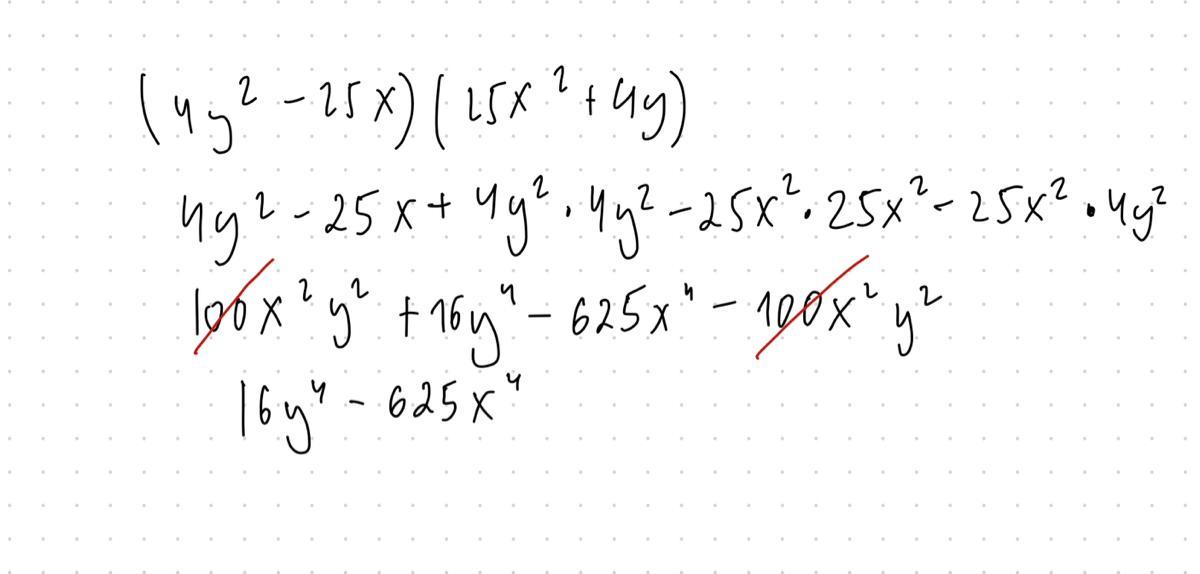 (4y² - 25x)(25x² + 4y)
4y² - 25x + 4y² · 4y² - 25x² · 25x² - 25x² · 4y²
100x²y² + 16y⁴ - 625x⁴ - 100x²y²
16y⁴ - 625x⁴